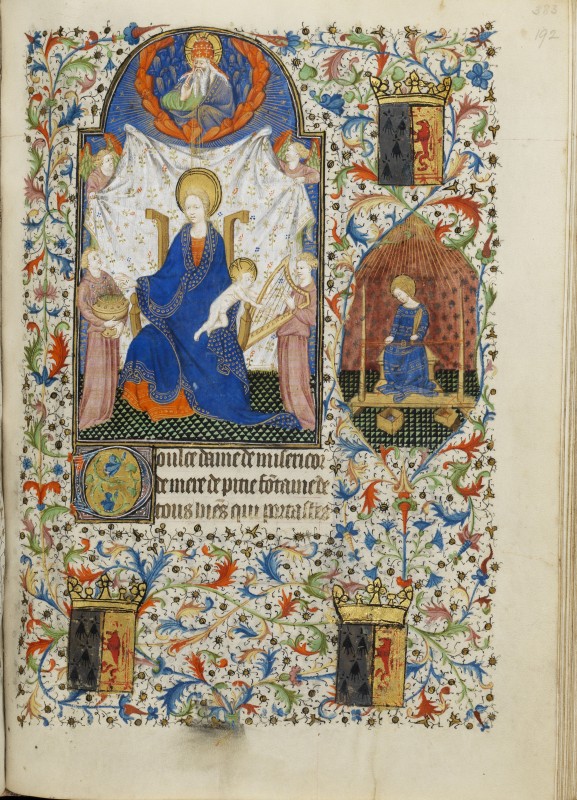 192
Doulce dame de misericor
de mere de pitie fōtaine de
tous biēs qui portastes